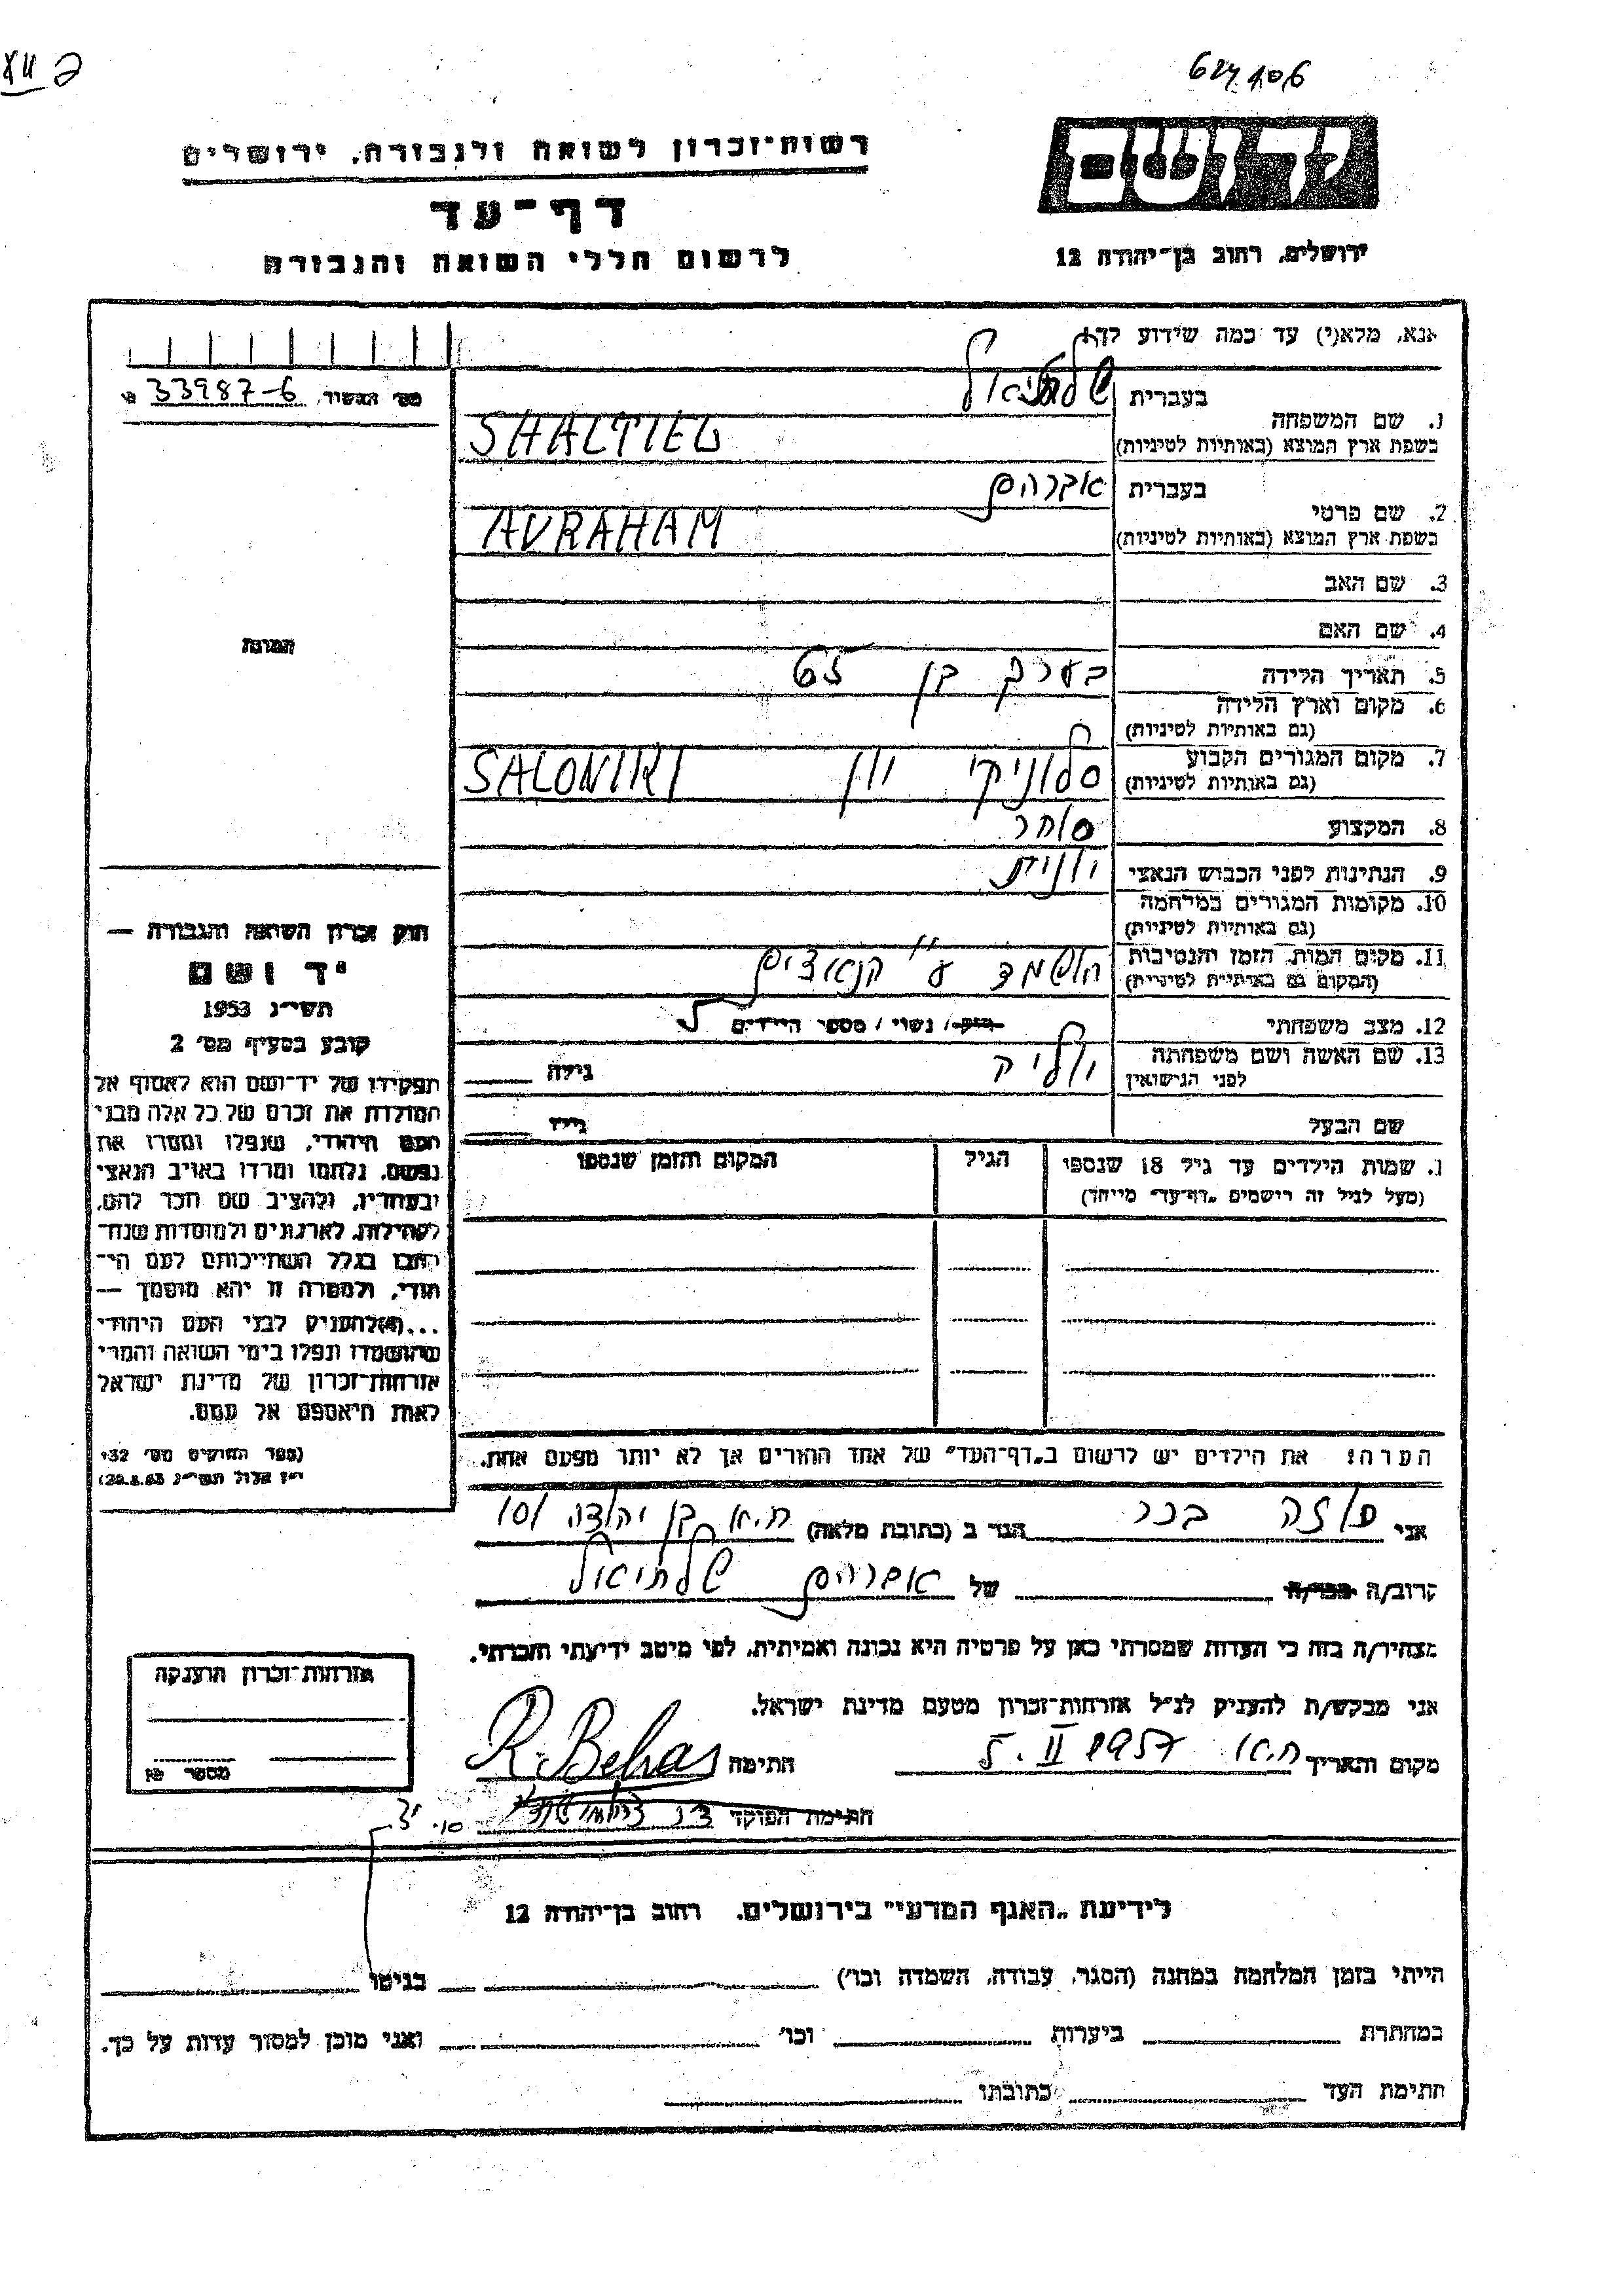 624106
רשות־זכרון לשואה ולגבורה, ירושלים
דף־עד
לרשום חללי השואה והגבורה
ידושם
ירושלים, רחוב בן־יהודה 12
אנא, מלא(י) עד כמה שידוע לך
מס׳ הבשיר 33987-6
בעברית שלתיאל
1. שם המשפחה
בשפת ארץ המוצא (באותיות לטיניות) SHALTIEL
בעברית אברהם
2. שם פרטי
בשפת ארץ המוצא (באותיות לטיניות) AVRAHAM
3. שם האב
4. שם האם
תמונה
5. תאריך הלידה בערך בן 65
6. מקום וארץ הלידה
(גם באותיות לטיניות)
7. מקום המגורים הקבוע סלוניקי יון SALONIKI
(גם באותיות לטיניות)
8. המקצוע סוחר
9. הנתינות לפני הכבוש הנאצי יונית
10. מקומות המגורים במלחמה
(גם באותיות לטיניות)
11. מקום המות, הזמן והנסיבות הושמד ע״י הנאצים
(המקום גם באותיות לטיניות)
12. מצב משפחתי רווק / נשוי / מספר הילדים 5
13. שם האשה ושם משפחתה
לפני הנישואין גילה
שם הבעל גילו
1. שמות הילדים עד גיל 18 שנספו
(מעל לגיל זה רישמים „דף־עד״ מייחד)
הגיל
המקום והזמן שנספו
חוק זכרון השואה והגבורה —
יד ושם
תשי״ג 1953
קובע בסעיף מס׳ 2
תפקידו של יד־ושם הוא לאסוף אל
המולדת את זכרם של כל אלה מבני
העם היהודי, שנפלו ומסרו את
נפשם, נלחמו ומרדו באויב הנאצי
ובעוזריו, ולהציב שם וזכר להם,
לקהילות, לארגונים ולמוסדות שנח־
רבו בגלל השתייכותם לעם הי־
הודי, ולמטרה זו יהא מוסמך —
...(4) להעניק לבני העם היהודי
שהושמדו ונפלו בימי השואה והמרי
אזרחות־זכרון של מדינת ישראל
לאות היאספם אל עמם.
(ספר החוקים מס׳ 132
י״ז אלול תשי״ג 28.8.53)
הערה: את הילדים יש לרשום ב„דף־העד״ של אחד ההורים אך לא יותר מפעם אחת.
אני רוזה בכר הגר ב (כתובת מלאה) ת.א בן יהודה 101
קרוב/ה מכר/ה של אברהם שלתיאל
מצהיר/ה בזה כי העדות שמסרתי כאן על פרטיה היא נכונה ואמיתית, לפי מיטב ידיעתי והכרתי.
אני מבקש/ת להעניק לנ״ל אזרחות־זכרון מטעם מדינת ישראל.
מקום ותאריך ת.א 5. II 1957 חתימה R. Behar
חתימת הפוקד
אזרחות־זכרון הוענקה
מספר
לידיעת „האגף המדעי״ בירושלים, רחוב בן־יהודה 12
הייתי בזמן המלחמה במחנה (הסגר, עבודה, השמדה וכו׳) בגיטו
במחתרת ביערות וכו׳ ואני מוכן למסור עדות על כך.
חתימת העד כתובתו